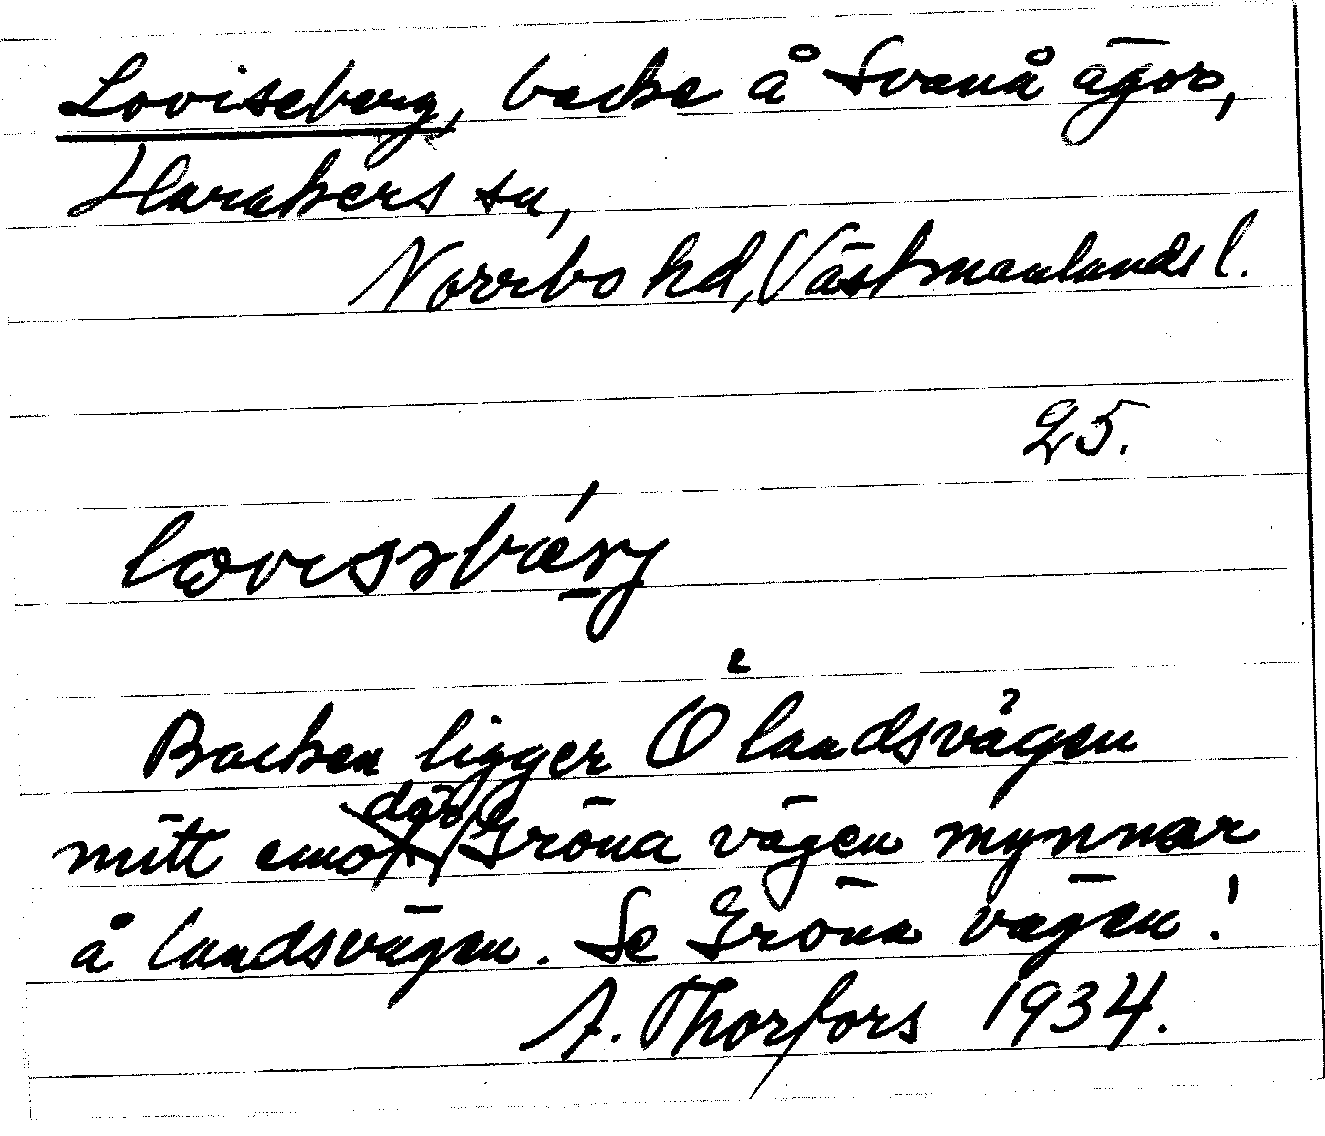 Loviseberg, backe å Svanå ägor,
Harakers sn,
Norrbo hd, Västmanlands l.
25.
Backen ligger Ö landsvägen
mitt emot där Gröna vägen mynnar
å landsvägen. Se Gröna vägen!
A. Thorfors 1934.